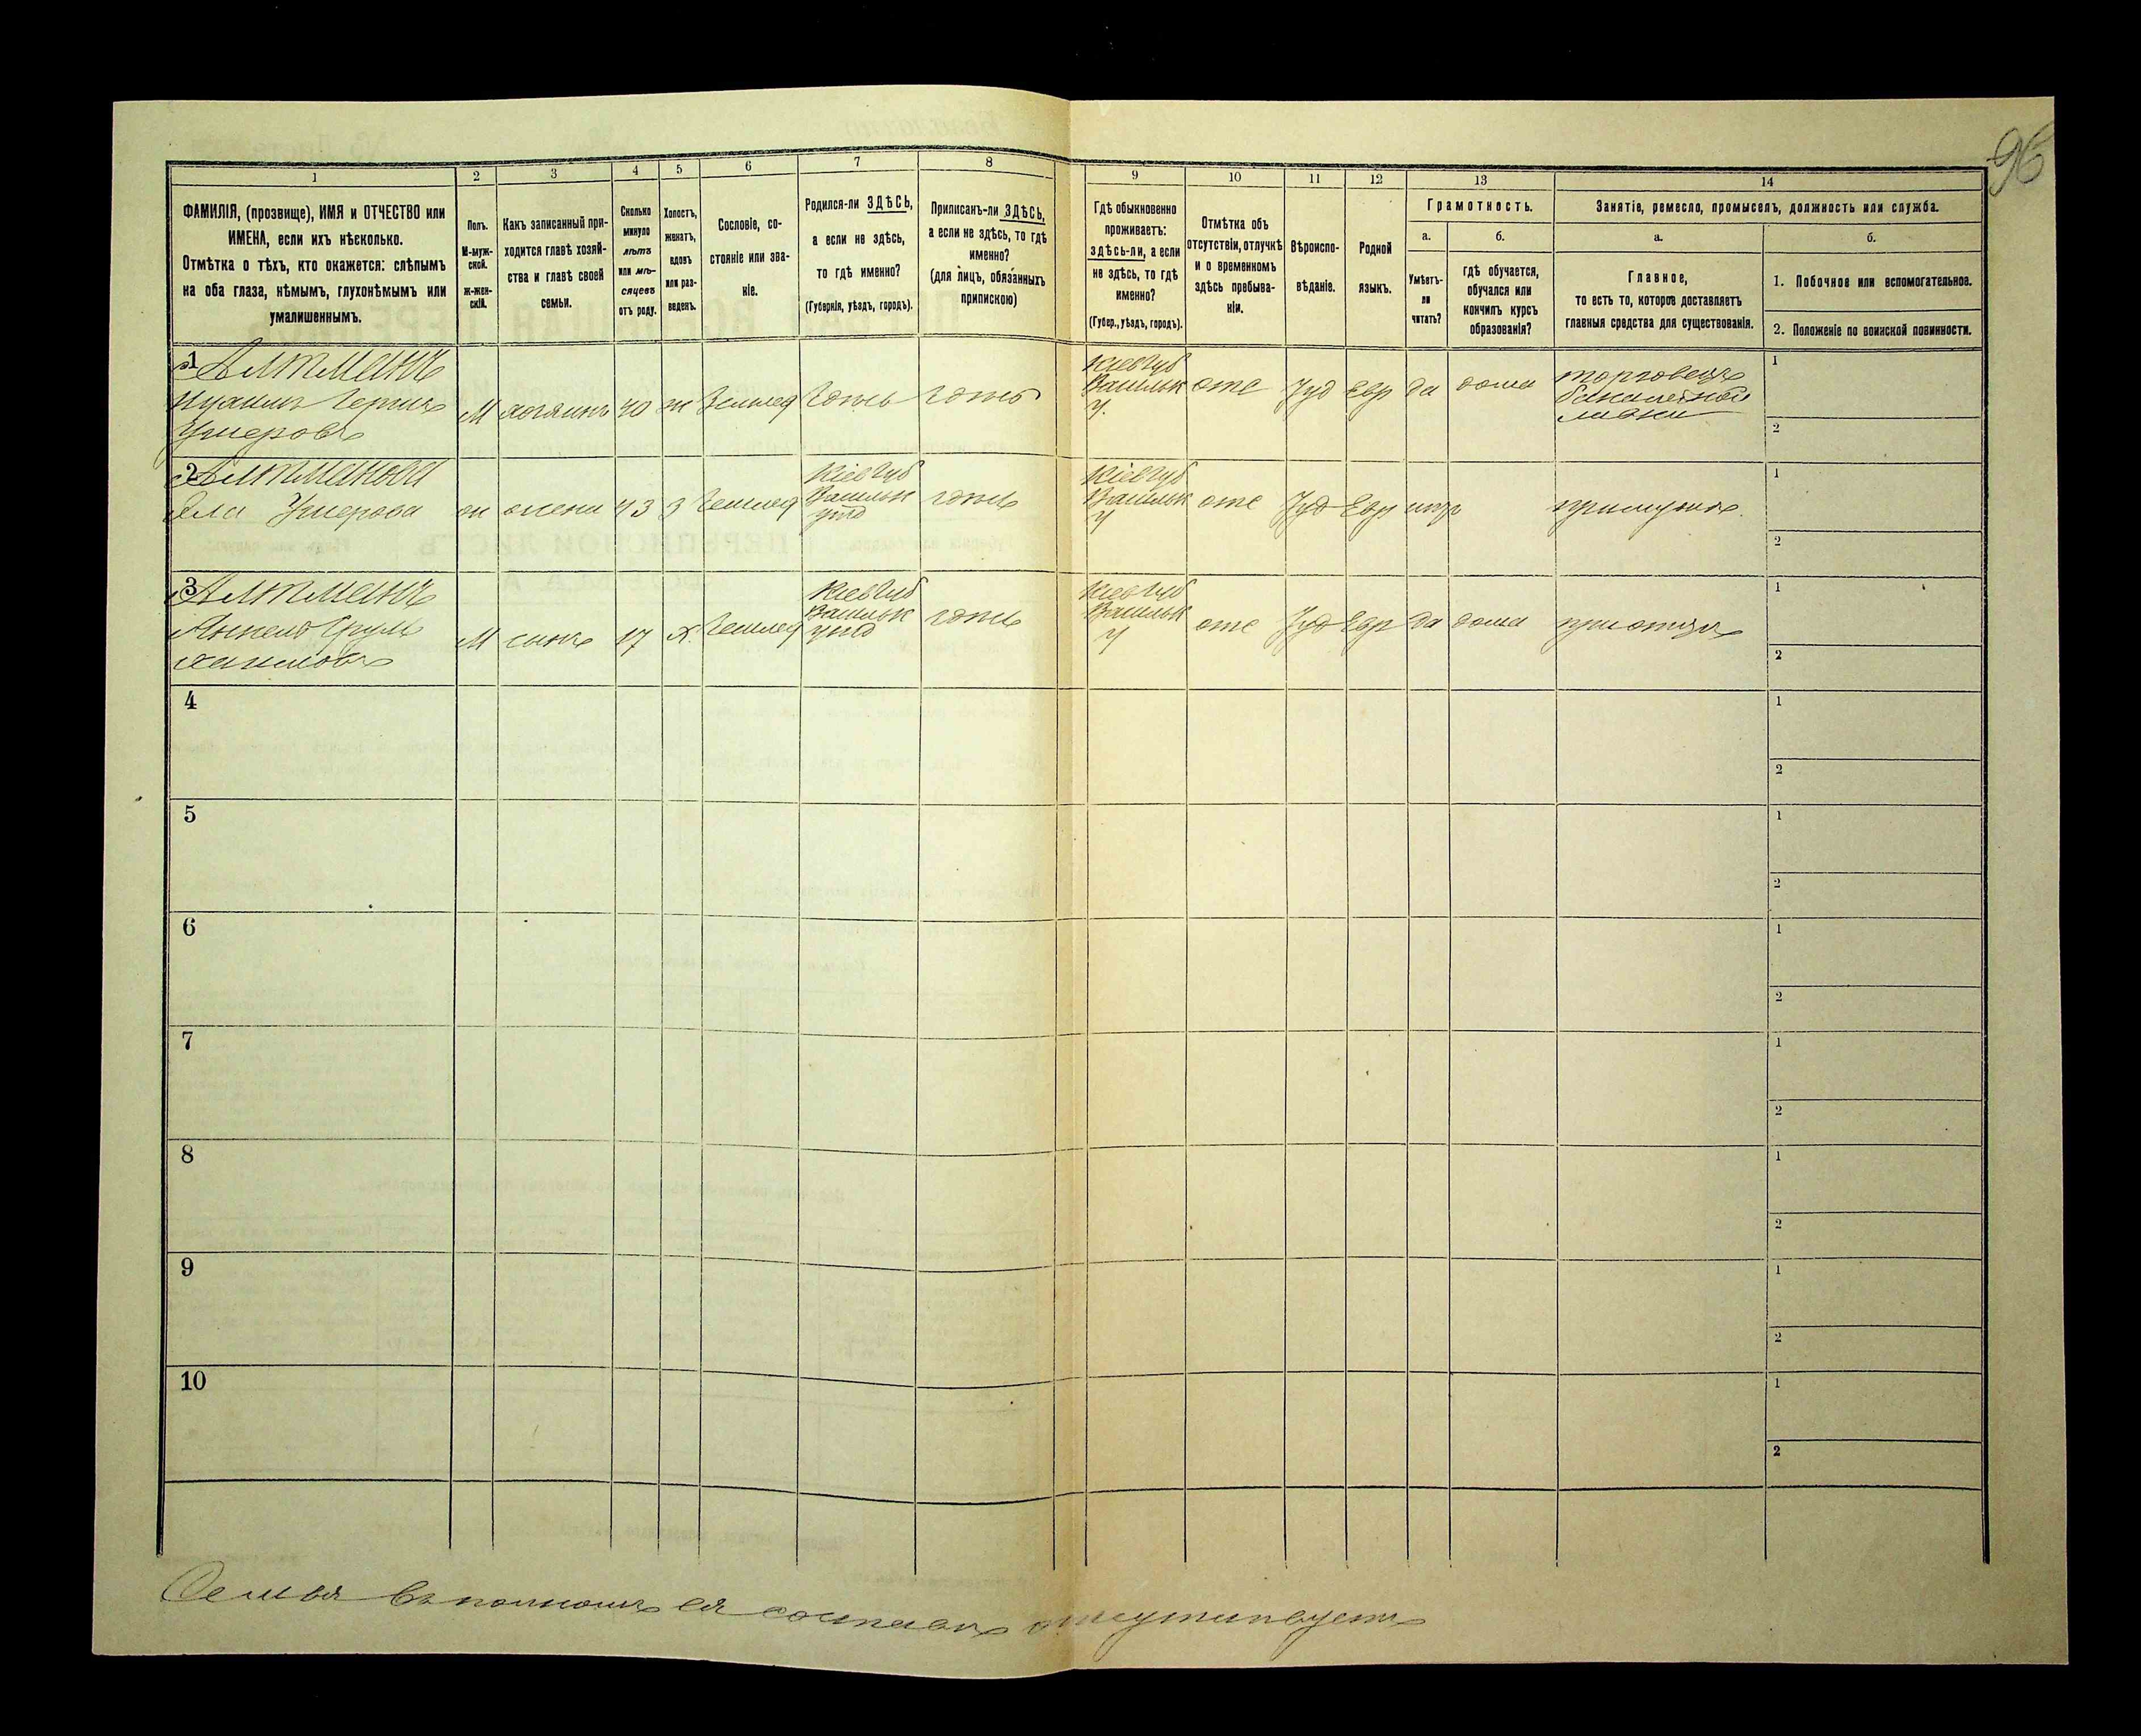 96
1
2
3
4
5
6
7
8
9
10
11
12
13
14
ФАМИЛІЯ, (прозвище), ИМЯ и ОТЧЕСТВО или
ИМЕНА, если ихъ нѣсколько.
Отмѣтка о тѣхъ, кто окажется: слѣпымъ
на оба глаза, нѣмымъ, глухонѣмымъ или
умалишеннымъ.
Полъ.
М-муж-
ской.
ж-жен-
скій.
Какъ записанный при-
ходится главѣ хозяй-
ства и главѣ своей
семьи.
Сколько
минуло
лѣтъ
или мѣ-
сяцевъ
отъ роду.
Холостъ,
женатъ,
вдовъ
или раз-
веденъ.
Сословіе, со-
стояніе или зва-
ніе.
Родился-ли ЗДѢСЬ,
а если не здѣсь,
то гдѣ именно?
(Губернія, уѣздъ, городъ).
Приписанъ-ли ЗДѢСЬ,
а если не здѣсь, то гдѣ
именно?
(для лицъ, обязанныхъ
припискою)
Гдѣ обыкновенно
проживаетъ:
здѣсь-ли, а если
не здѣсь, то гдѣ
именно?
(Губер., уѣздъ, городъ).
Отмѣтка объ
отсутствіи, отлучкѣ
и о временномъ
здѣсь пребыва-
ніи.
Вѣроиспо-
вѣданіе.
Родной
языкъ.
Грамотность.
а.
Умѣетъ-
ли
читать?
б.
гдѣ обучается,
обучался или
кончилъ курсъ
образованія?
Занятіе, ремесло, промыселъ, должность или служба.
а.
Главное,
то есть то, которое доставляетъ
главныя средства для существованія.
б.
1. Побочное или вспомогательное.
2. Положеніе по воинской повинности.
1 Альтманъ
М хозяинъ 40 ж Землед
Кіев Губ
Васильк
У.
отс Іуд Евр да дома
торговецъ
бакалейной
лавки
1
2
2 Альтманова
Умерова
жена 43 З Землед
Кіев Губ
Васильк
Кіев Губ
Васильк
У
отс Іуд Евр
при мужѣ
1
2
3 Альтманъ
М сынъ 17 Х. Землед
Кіев Губ
Васильк
Кіев Губ
Васильк
У
отс Іуд Евр да дома
при отцѣ
1
2
4
1
2
5
1
2
6
1
2
7
1
2
8
1
2
9
1
2
10
1
2
Семья въ полномъ ея составѣ отсутствуетъ